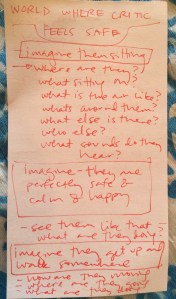 WORLD WHERE CRITIC
FEELS SAFE
Imagine them sitting
- Where are they?
what sitting on?
what is the air like?
whats around them?
what else is there?
who else?
what sounds do they
hear?
Imagine - they are
perfectly safe &
calm & happy
- see them like that
what are they doing?
Imagine they get up and
walk somewhere
- how are they moving
- where are they going
- what are they doing